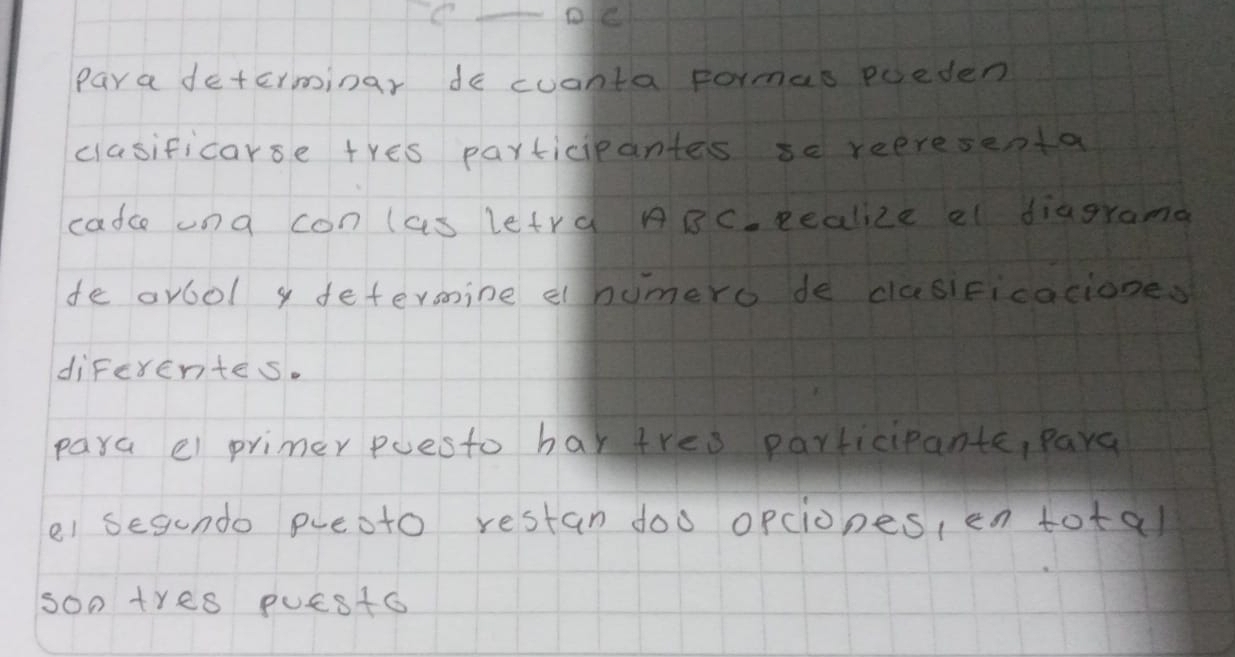 C — D C
Para determinar de cuanta Formas pueden
clasificarse tres participantes se representa
cada una con las letra A B C. Realize el diagrama
de arbol y determine el número de clasificaciones
diferentes.
para el primer puesto hay tres participante, para
el segundo puesto restan dos opciones, en total
son tres puesto